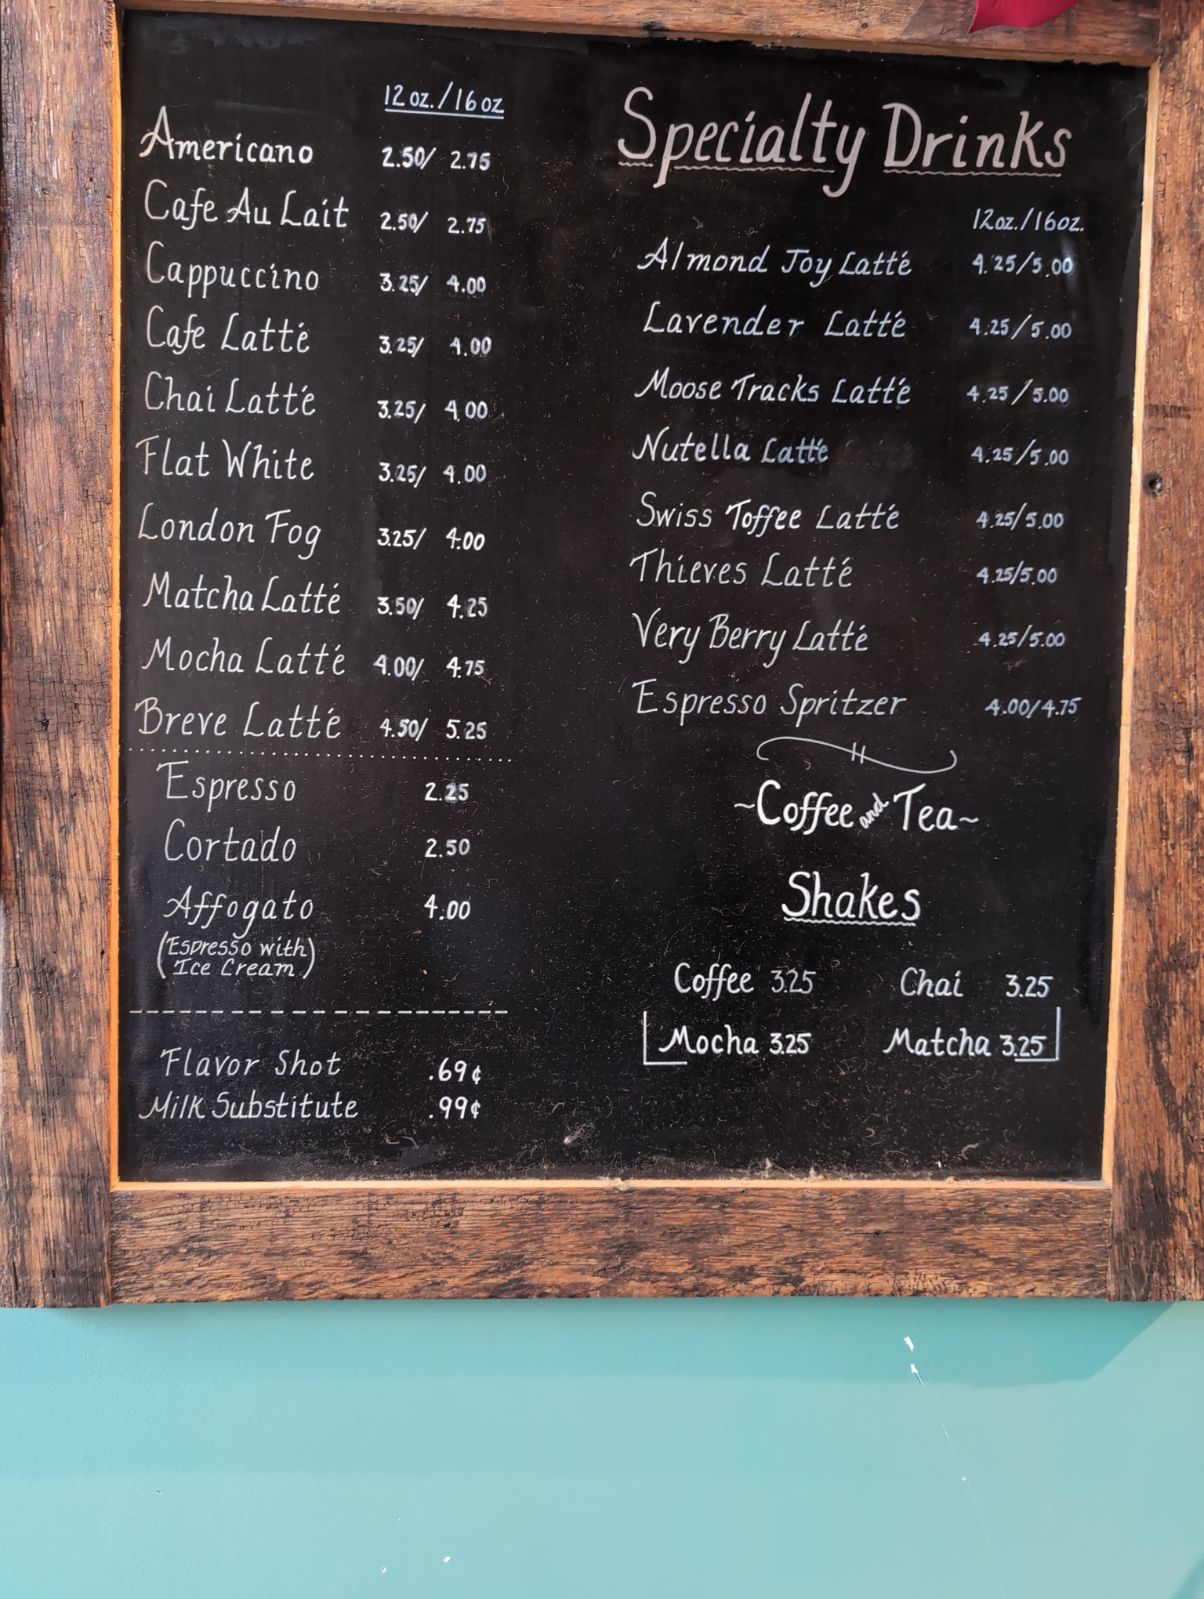 12 oz./16 oz
Americano 2.50/ 2.75
Cafe Au Lait 2.50/ 2.75
Cappuccino 3.25/ 4.00
Cafe Latté 3.25/ 4.00
Chai Latté 3.25/ 4.00
Flat White 3.25/ 4.00
London Fog 3.25/ 4.00
Matcha Latté 3.50/ 4.25
Mocha Latté 4.00/ 4.75
Breve Latté 4.50/ 5.25
Espresso 2.25
Cortado 2.50
Affogato 4.00
(Espresso with
Ice Cream)
Flavor Shot .69¢
Milk Substitute .99¢
Specialty Drinks
12oz./16oz.
Almond Joy Latté 4.25/5.00
Lavender Latté 4.25/5.00
Moose Tracks Latté 4.25/5.00
Nutella Latté 4.25/5.00
Swiss Toffee Latté 4.25/5.00
Thieves Latté 4.25/5.00
Very Berry Latté 4.25/5.00
Espresso Spritzer 4.00/4.75
~Coffee and Tea~
Shakes
Coffee 3.25 Chai 3.25
Mocha 3.25 Matcha 3.25